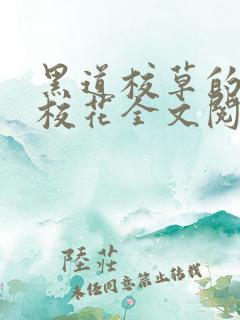 黑道校草的
校花全文阅
陸莊
未经同意禁止转载